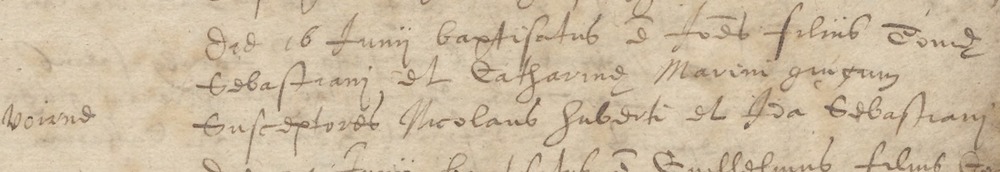 die 16 Junii baptisatus ē Joēs filius Tomę
Sebastiani et Catharinę Marini
voirne
Susceptores Nicolaus huberti et Ida Sebastiani
Junii baptisatus ē Guilhelmus filius